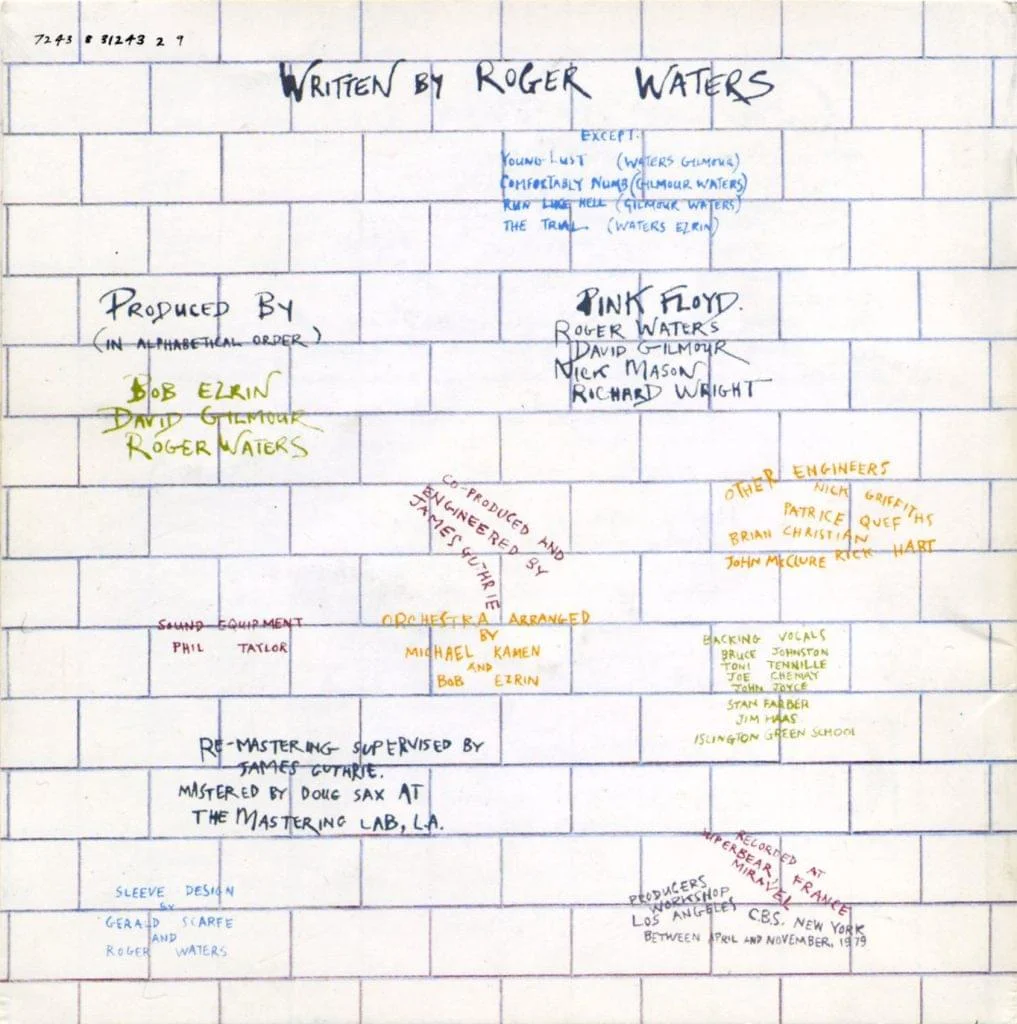 7243 8 31243 2 9
WRITTEN BY ROGER WATERS
EXCEPT:
YOUNG LUST (WATERS GILMOUR)
COMFORTABLY NUMB (GILMOUR WATERS)
RUN LIKE HELL (GILMOUR WATERS)
THE TRIAL (WATERS EZRIN)
PRODUCED BY
(IN ALPHABETICAL ORDER)
BOB EZRIN
DAVID GILMOUR
ROGER WATERS
PINK FLOYD.
ROGER WATERS
DAVID GILMOUR
NICK MASON
RICHARD WRIGHT
CO-PRODUCED AND
ENGINEERED BY
JAMES GUTHRIE
OTHER ENGINEERS
NICK GRIFFITHS
PATRICE QUEF
BRIAN CHRISTIAN
JOHN McCLURE RICK HART
SOUND EQUIPMENT
PHIL TAYLOR
ORCHESTRA ARRANGED
BY
MICHAEL KAMEN
AND
BOB EZRIN
BACKING VOCALS
BRUCE JOHNSTON
TONI TENNILLE
JOE CHEMAY
JOHN JOYCE
STAN FARBER
JIM HAAS
ISLINGTON GREEN SCHOOL
RE-MASTERING SUPERVISED BY
JAMES GUTHRIE.
MASTERED BY DOUG SAX AT
THE MASTERING LAB, L.A.
SLEEVE DESIGN
BY
GERALD SCARFE
AND
ROGER WATERS
RECORDED AT
SUPERBEAR, FRANCE
MIRAVEL
PRODUCERS
WORKSHOP
LOS ANGELES C.B.S. NEW YORK
BETWEEN APRIL AND NOVEMBER, 1979